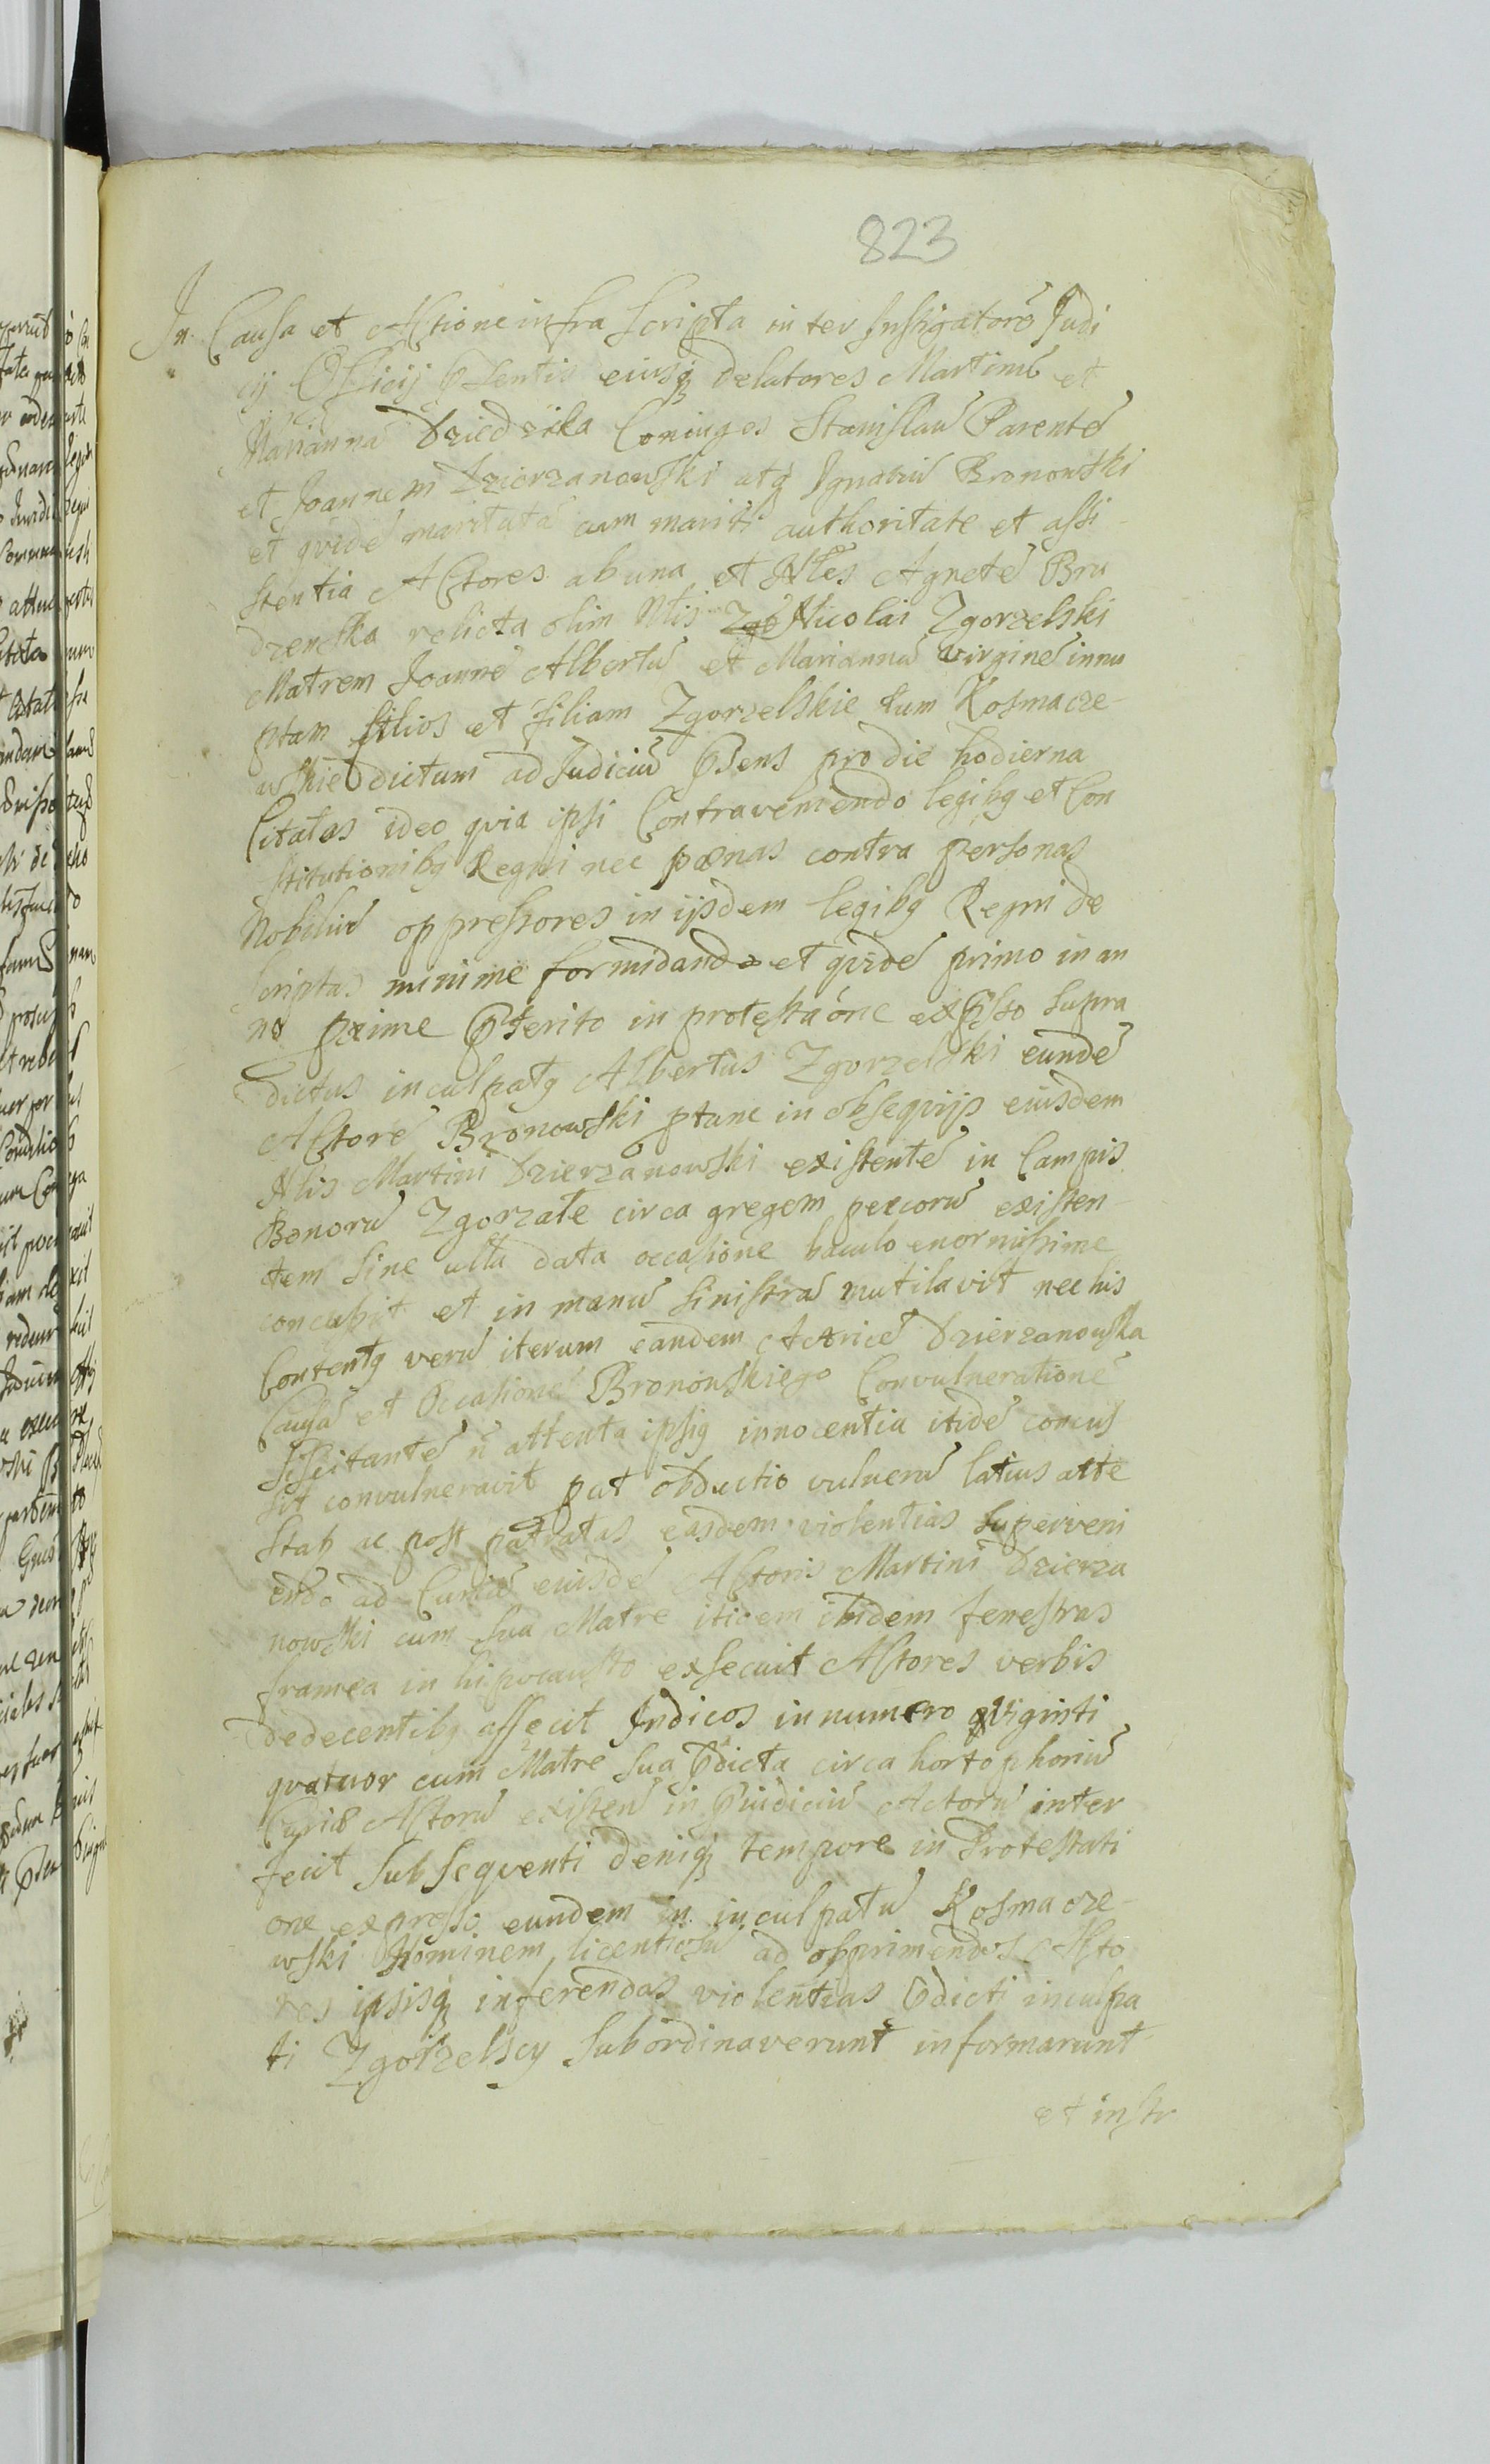 823
In Causa et Actione infra scripta inter Instigatorẽ Judi
cij Officij pñsentis eiusq̃ delatores Martinũ et
Mariannã Dziedzika Coniuges Stanislaũ Parentẽ
et Joannem Dzierzanowski atq̃ Ignatiũ Bronowski
et qvidẽ maritatã cum mariti authoritate et assi-
stentia Actores ab una et Nłes Agnetẽ Bru
dzenska relicta olim Nłis Zgo Nicolai Zgorzelski
Matrem Joannẽ Albertũ et Mariannã Virginẽ innu
ptam filios et filiam Zgorzelskie tum Kosmacze-
wskie dictum ad Judiciũ pñsens pro die hodierna
Citatos ideo qvia ipsi Contraveniendo legibq et Con
stitutionibq Regni nec pœnas contra personas
Nobiliũ oppressores in ijsdem legibq Regni de
scriptas minime formidando et qvidẽ primo in an
no proxime pterito in protestaóne expsso supra
dictus inculpatq Albertus Zgorzelski eundẽ
Actorẽ Bronowski ptunc in obseqvijs eiusdem
Nłis Martini Dzierzanowski existentẽ in Campis
Bonorũ Zgorzałe circa gregem pecorũ existen-
tem sine ulla data occasione baculo enormissime
concussit et in manũ sinistrã mutilavit nec his
Contentq verũ iterum eandem Actricẽ Dzierzanowska
Causã et Occasionẽ Bronowskiego Convulnerationẽ
sciscitantẽ ñ attenta ipsiq innocentia itidẽ concus
sit convulneravit put obductio vulnerũ latius atte
stat ac post patratas easdem violentias superveni
endo ad Curiã eiusdẽ Actoris Martini Dzierza
nowski cum sua Matre itidem ibidem fenestras
framea in hipocausto exsecuit Actores verbis
dedecentibq affecit Indicos in numero viginti
qvatuor cum Matre sua pdicta circa horto phoriũ
Curiæ Actorũ existeñ in pjudiciũ Actorũ inter
fecit subseqventi deniq̃ tempore in Protestati
one expresso eundem inculpatũ Kosmacze-
wski Hominem licentiosũ ad opprimendos Acto
res ipsisq̃ inferendas violentias pdicti inculpa
ti Zgorzelscy subordinaverunt informarunt
et instr